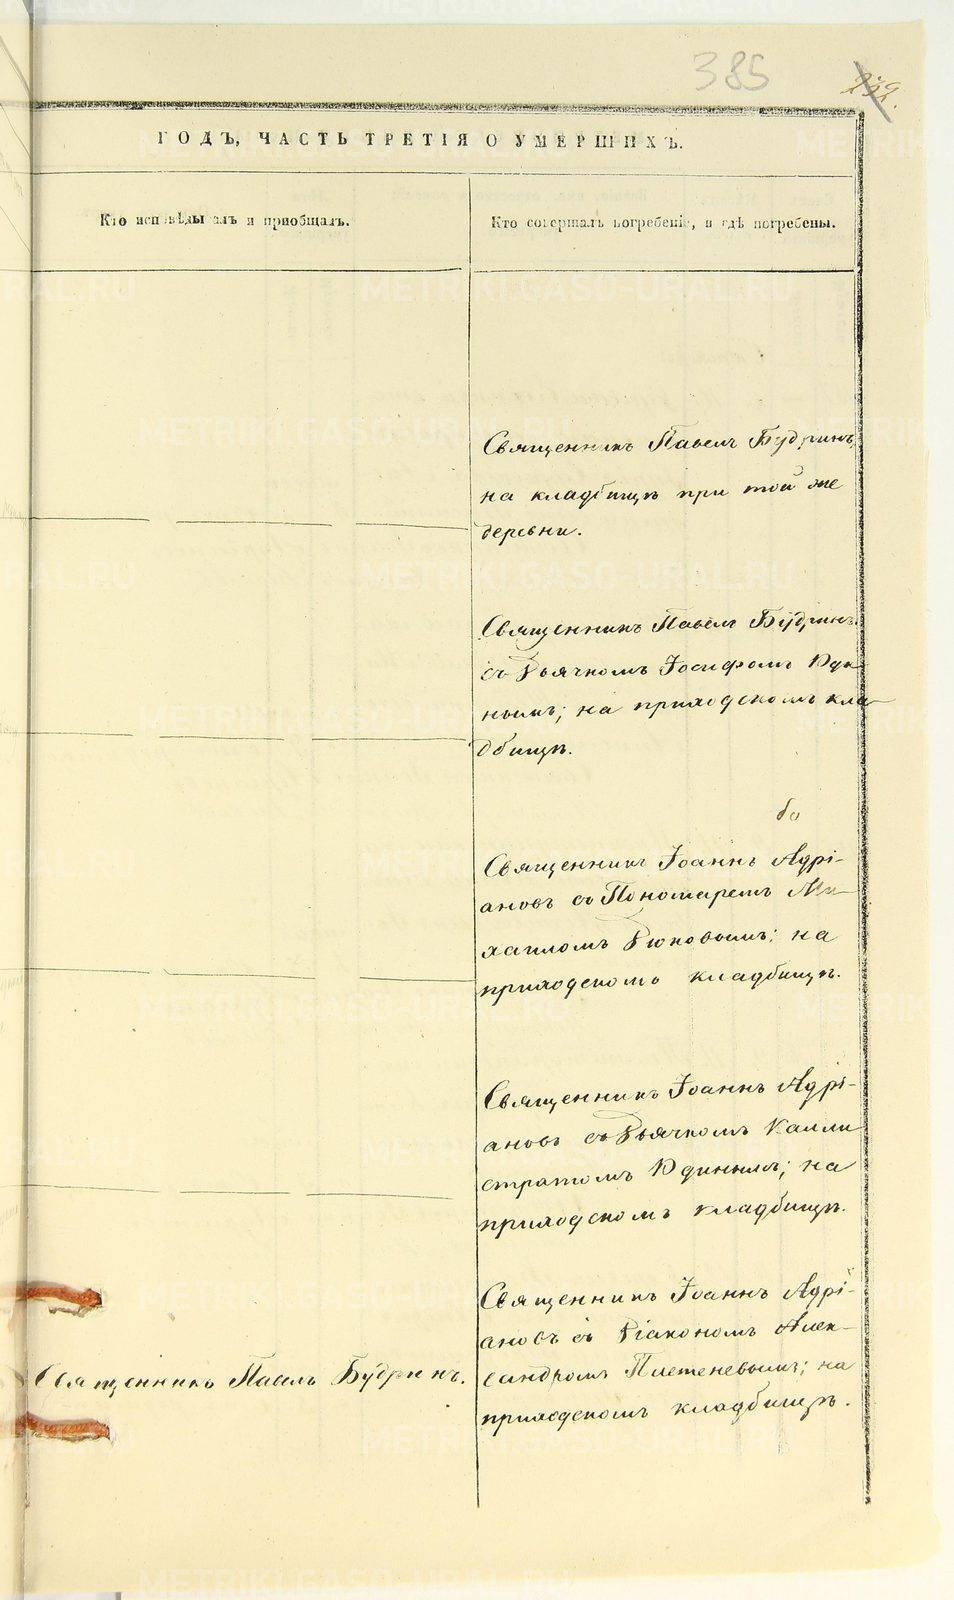 385
232.
ГОДЪ, ЧАСТЬ ТРЕТІЯ О УМЕРШИХЪ.
Кто исповѣдывалъ и приобщалъ.
Кто совершалъ погребеніе, и гдѣ погребены.
Священникъ Павелъ Будринъ,
на кладбищѣ при той же
деревни.
Священникъ Павелъ Будринъ
съ Дьячкомъ Іосифомъ Юди-
нымъ; на приходскомъ кла-
дбищѣ.
Священникъ Іоаннъ Адрі-
ановъ съ Пономаремъ Ми-
хаиломъ; на
приходскомъ кладбищѣ.
Священникъ Іоаннъ Адрі-
ановъ съ Дьячкомъ Калли
стратомъ Юдинымъ; на
приходскомъ кладбищѣ.
Священникъ Іоаннъ Адрі-
ановъ съ Діакономъ Алек-
сандромъ Плетеневымъ; на
приходскомъ кладбищѣ.
Священникъ Павелъ Будринъ.
METRIKI.GASO-URAL.RU